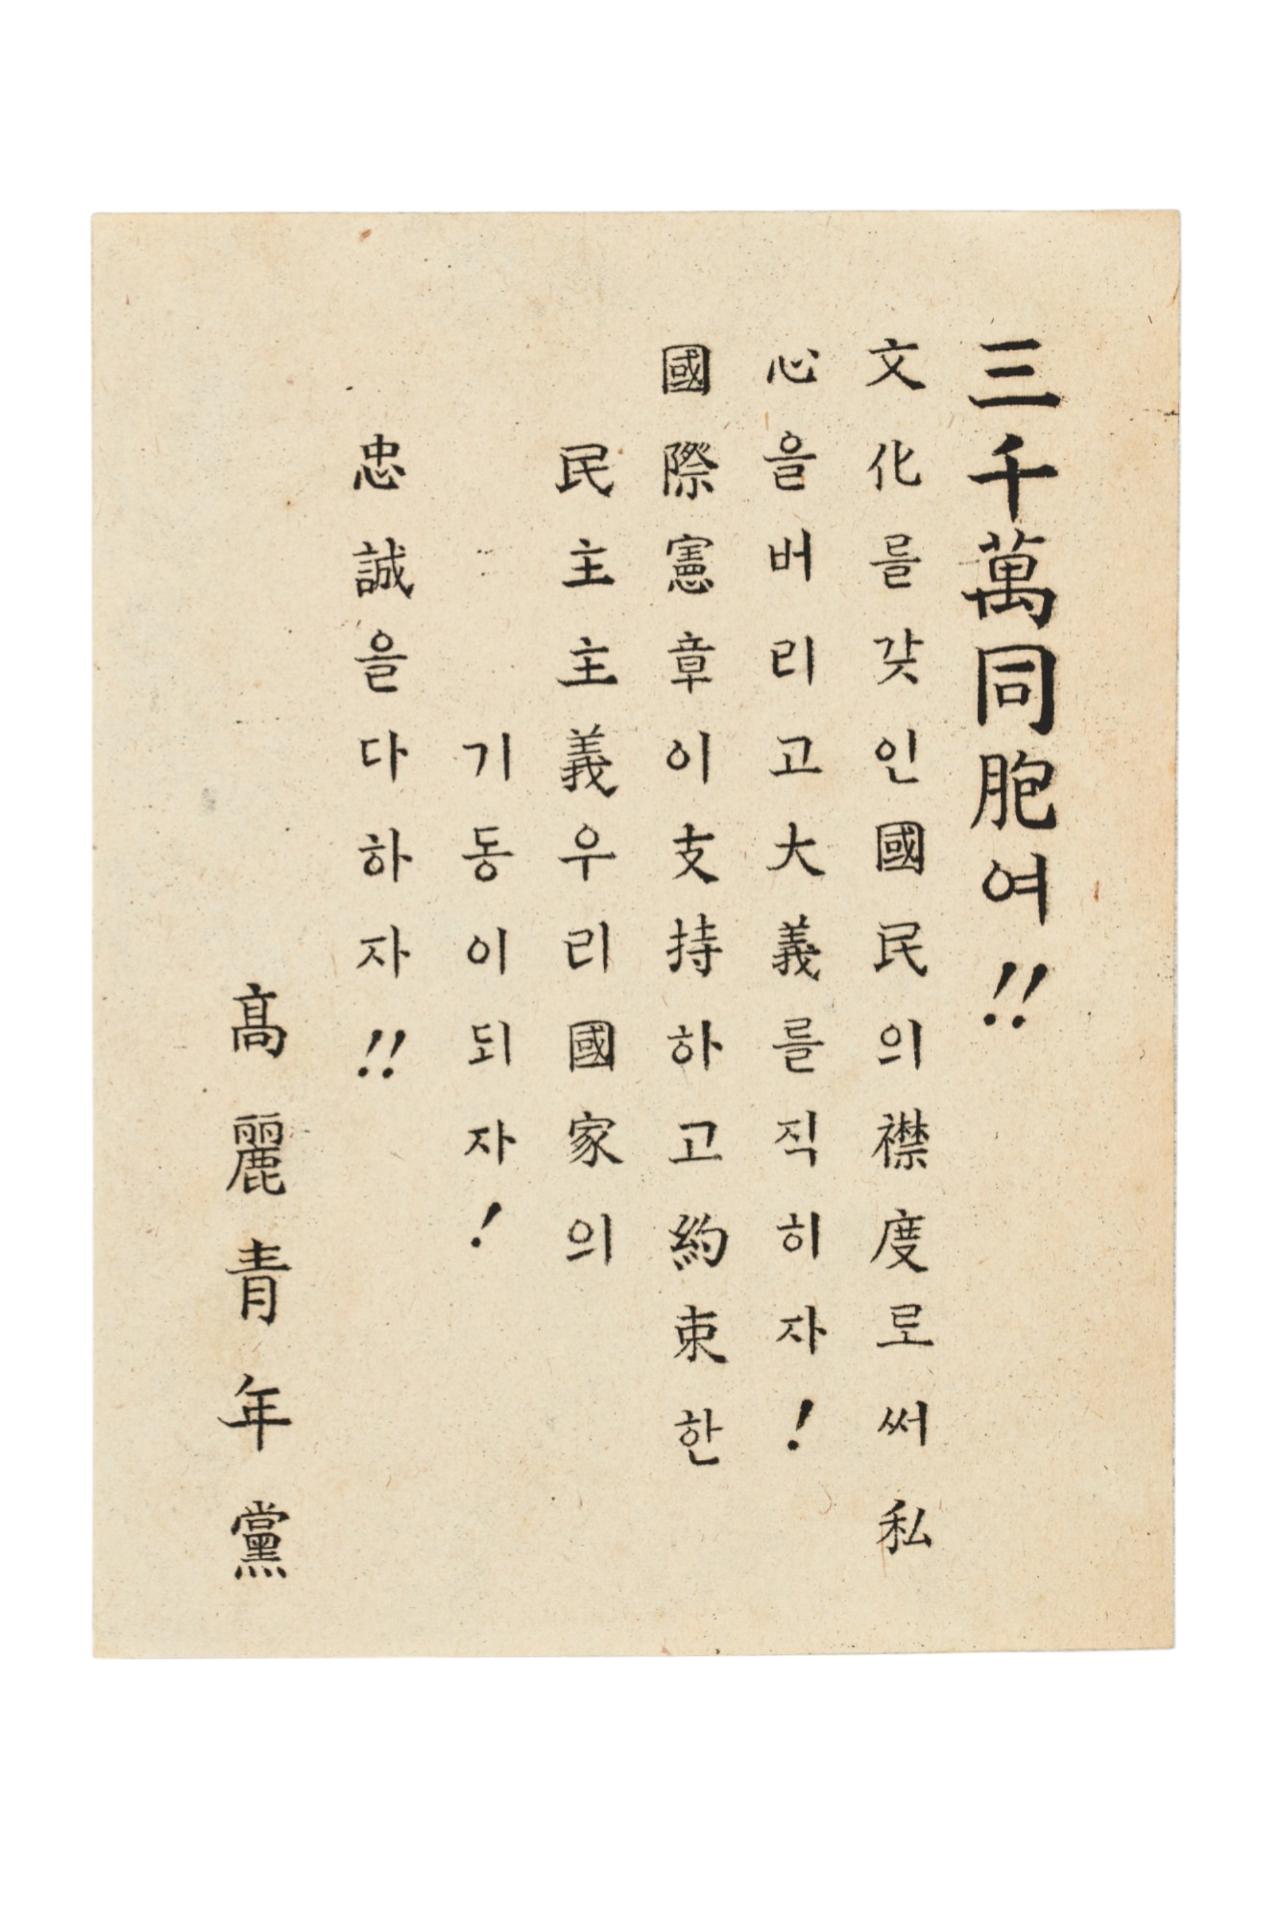 三千萬同胞여!!
文化를갖인國民의襟度로써私
心을버리고大義를직히자!
國際憲章이支持하고約束한
民主主義우리國家의
기동이되자!
忠誠을다하자!!
高麗青年黨